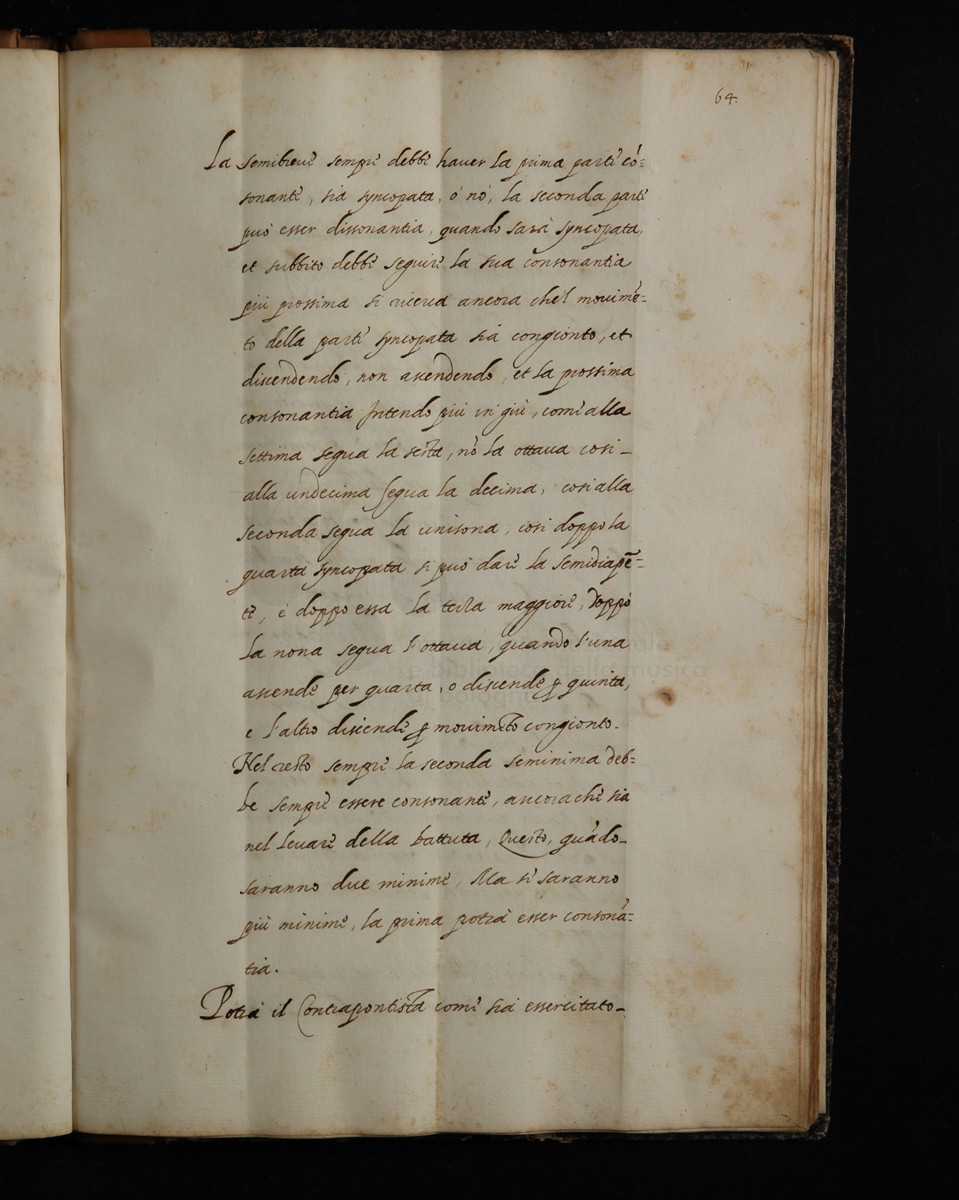 64.
La semibreve sempre debbe haver la prima parte cō=
sonante, sia syncopata, ò nò, la seconda parte
può esser dissonantia, quando sarà syncopata,
et subbito debbe seguire la sua cōnsonantia
più prossima si ricerca ancora che'l movimē=
to della parte syncopata sia congionto, et
discendendo, non ascendendo, et la prossima
consonantia Intendo più in giù, come alla
settima segua la sesta, nō la ottava cosi
alla undecima segua la decima, cosi alla
seconda segua la unisona, cosi doppo la
quarta syncopata si può dare la semidiapē=
te, è doppo essa la terza maggiore, Doppò
la nona segua l'ottava, quando l'una
ascende per quarta, o discende ꝑ quinta,
e l'altro discende ꝑ movimēto congionto.
Nel resto sempre la seconda seminima deb=
be sempre essere consonante, ancora che sia
nel levare della battuta, Questo, quādo
saranno due minime, Ma se saranno
più minime, la prima potrà esser consonā=
tia.
Potrà il Contrapontista come sia essercitato
della musica